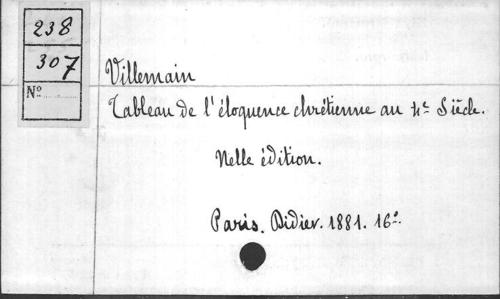 238
307
Nº
Villemain
Tableau de l'éloquence chrétienne au 4e Siècle.
Nelle édition.
Paris. Didier. 1881. 16º.